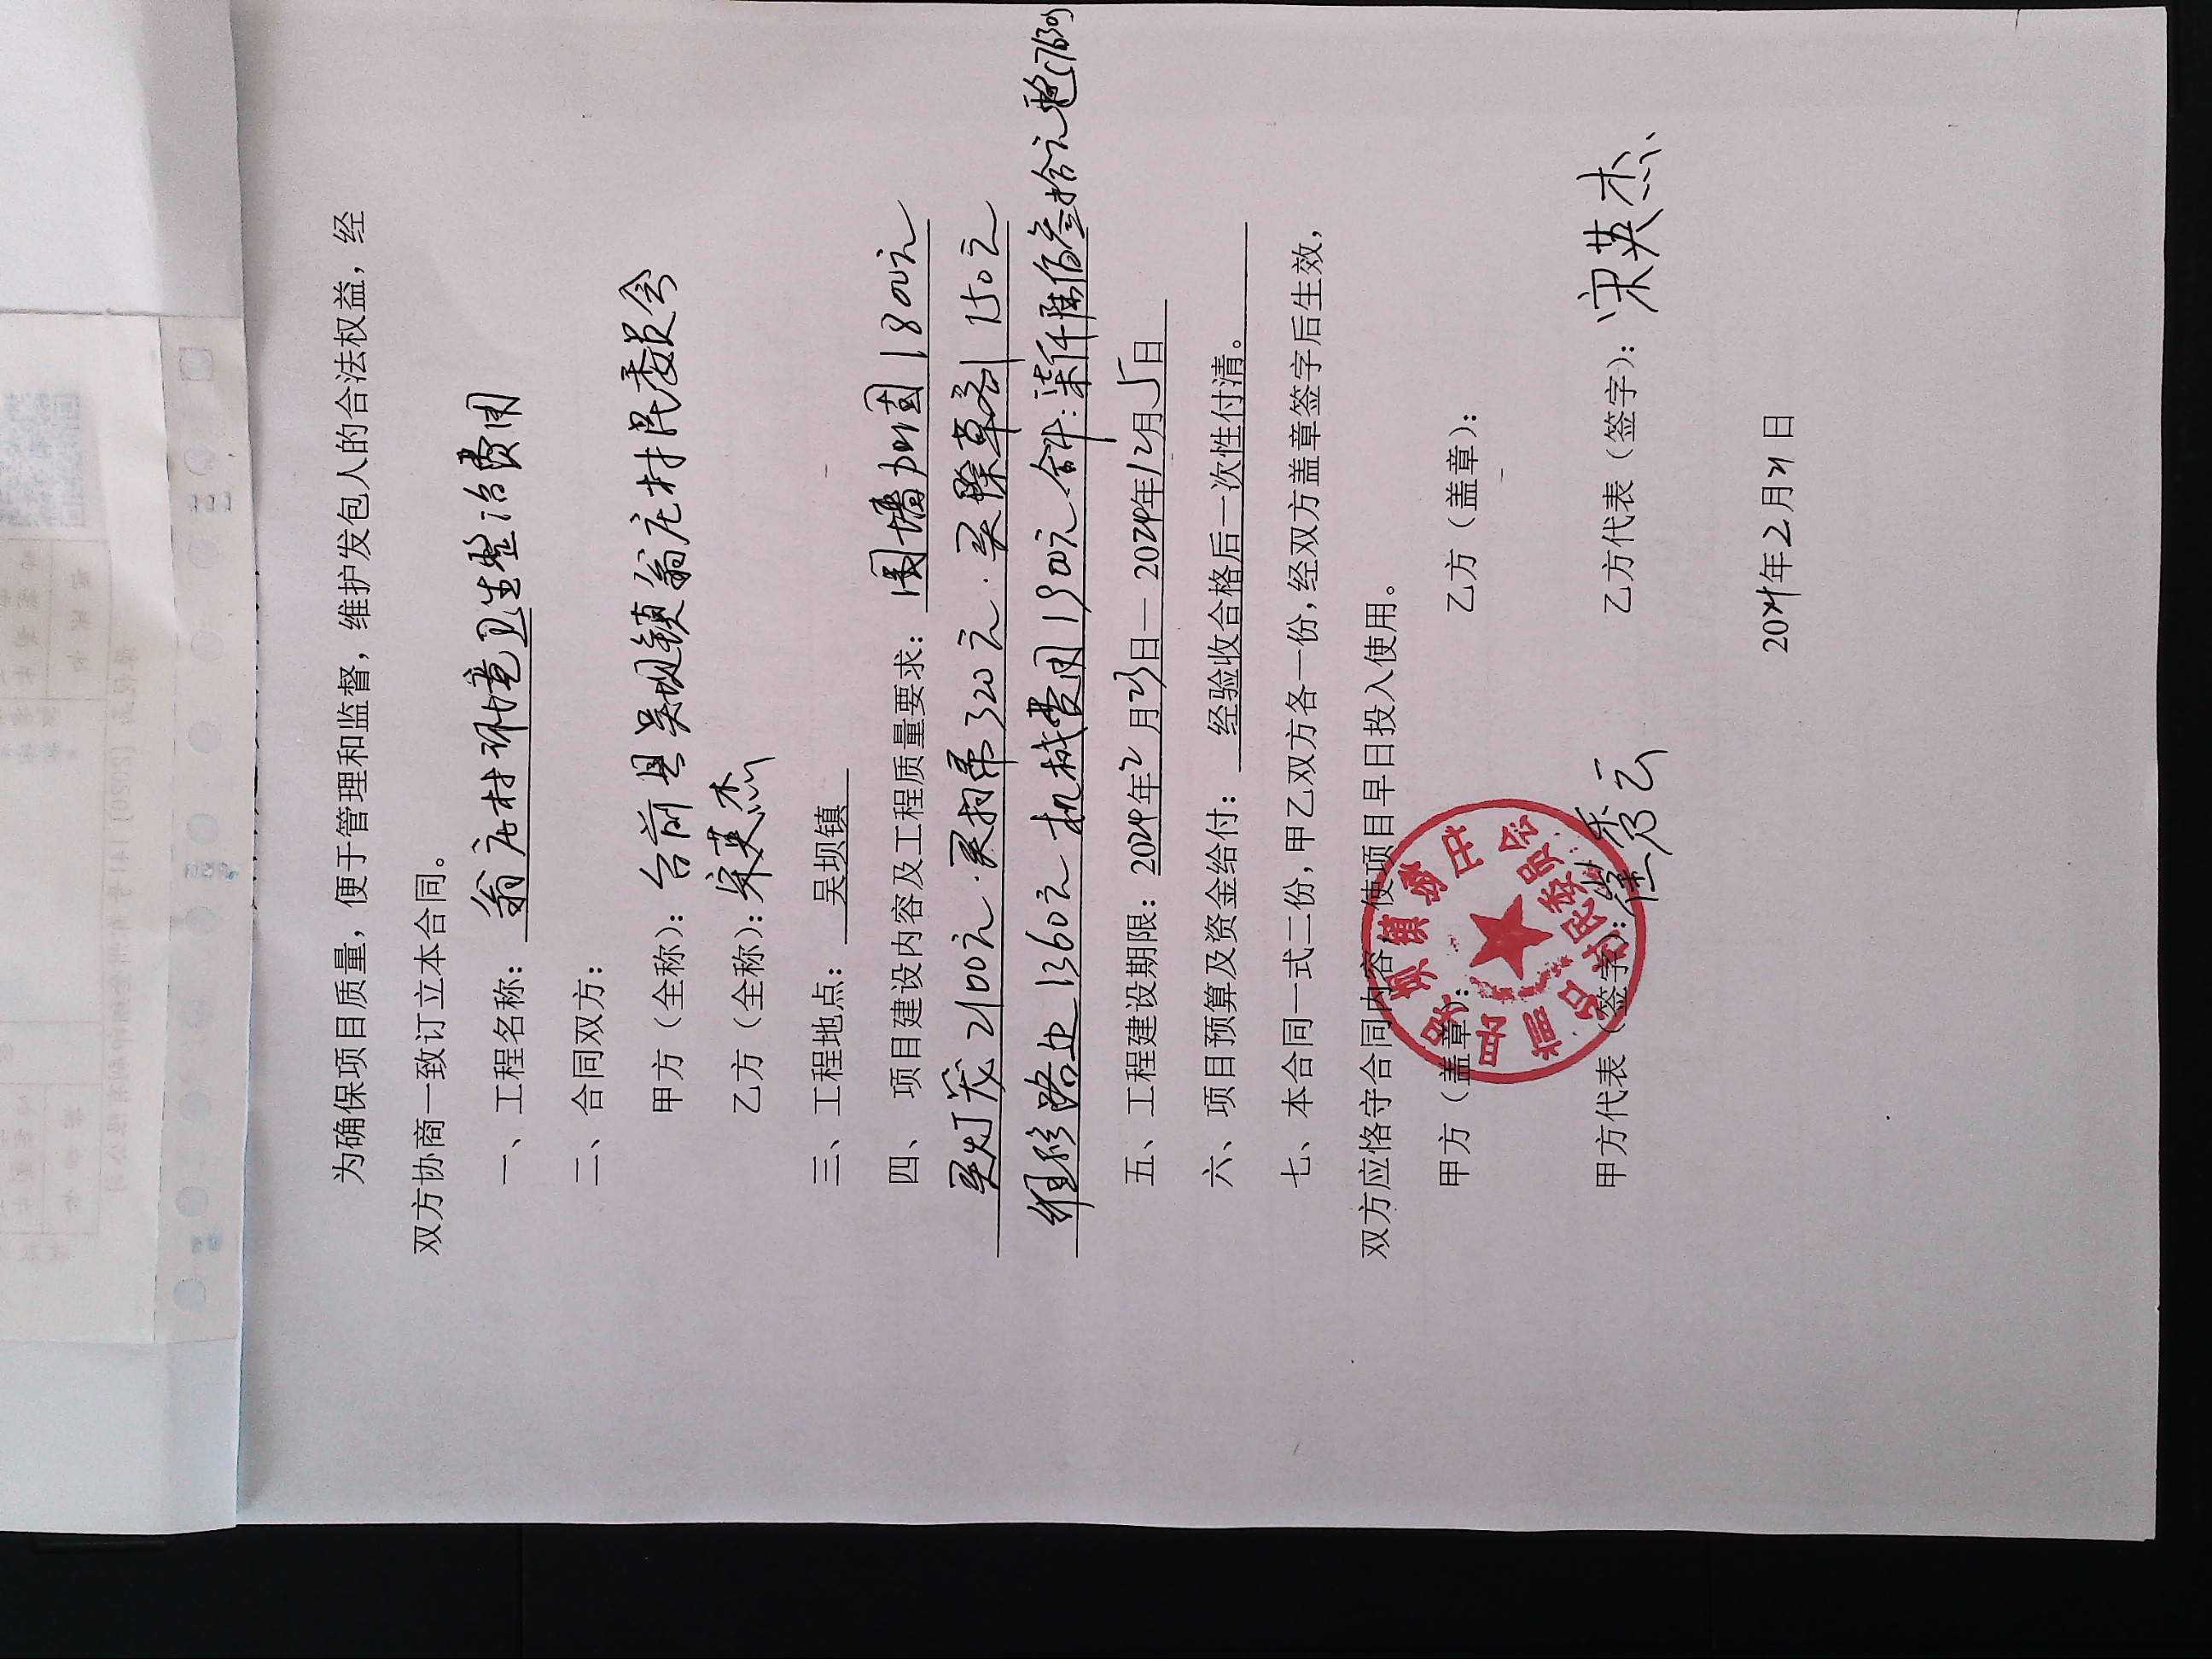 为确保项目质量，便于管理和监督，维护发包人的合法权益，经
双方协商一致订立本合同。
一、工程名称：翁庄村环境卫生整治费用
二、合同双方：
甲方（全称）：台前县吴坝镇翁庄村民委员会
乙方（全称）：宋英杰
三、工程地点：吴坝镇
四、项目建设内容及工程质量要求：围墙加固1800元
买灯笼2100元.买扫帚320元.买除草剂150元
维修路边1360元机械费用1900元.合计:柒仟陆佰叁拾元整(7630)
五、工程建设期限：2024年2月23日—2024年12月5日
六、项目预算及资金给付：经验收合格后一次性付清。
七、本合同一式二份，甲乙双方各一份，经双方盖章签字后生效，
双方应恪守合同内容，使项目早日投入使用。
甲方（盖章）： 乙方（盖章）：
甲方代表（签字）：秀云 乙方代表（签字）：宋英杰
2024年2月21日